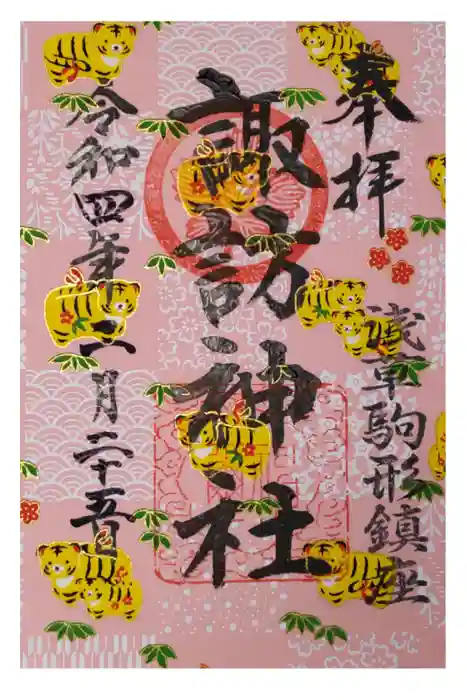 奉拝
浅草駒形鎮座
諏訪神社
令和四年一月二十五日